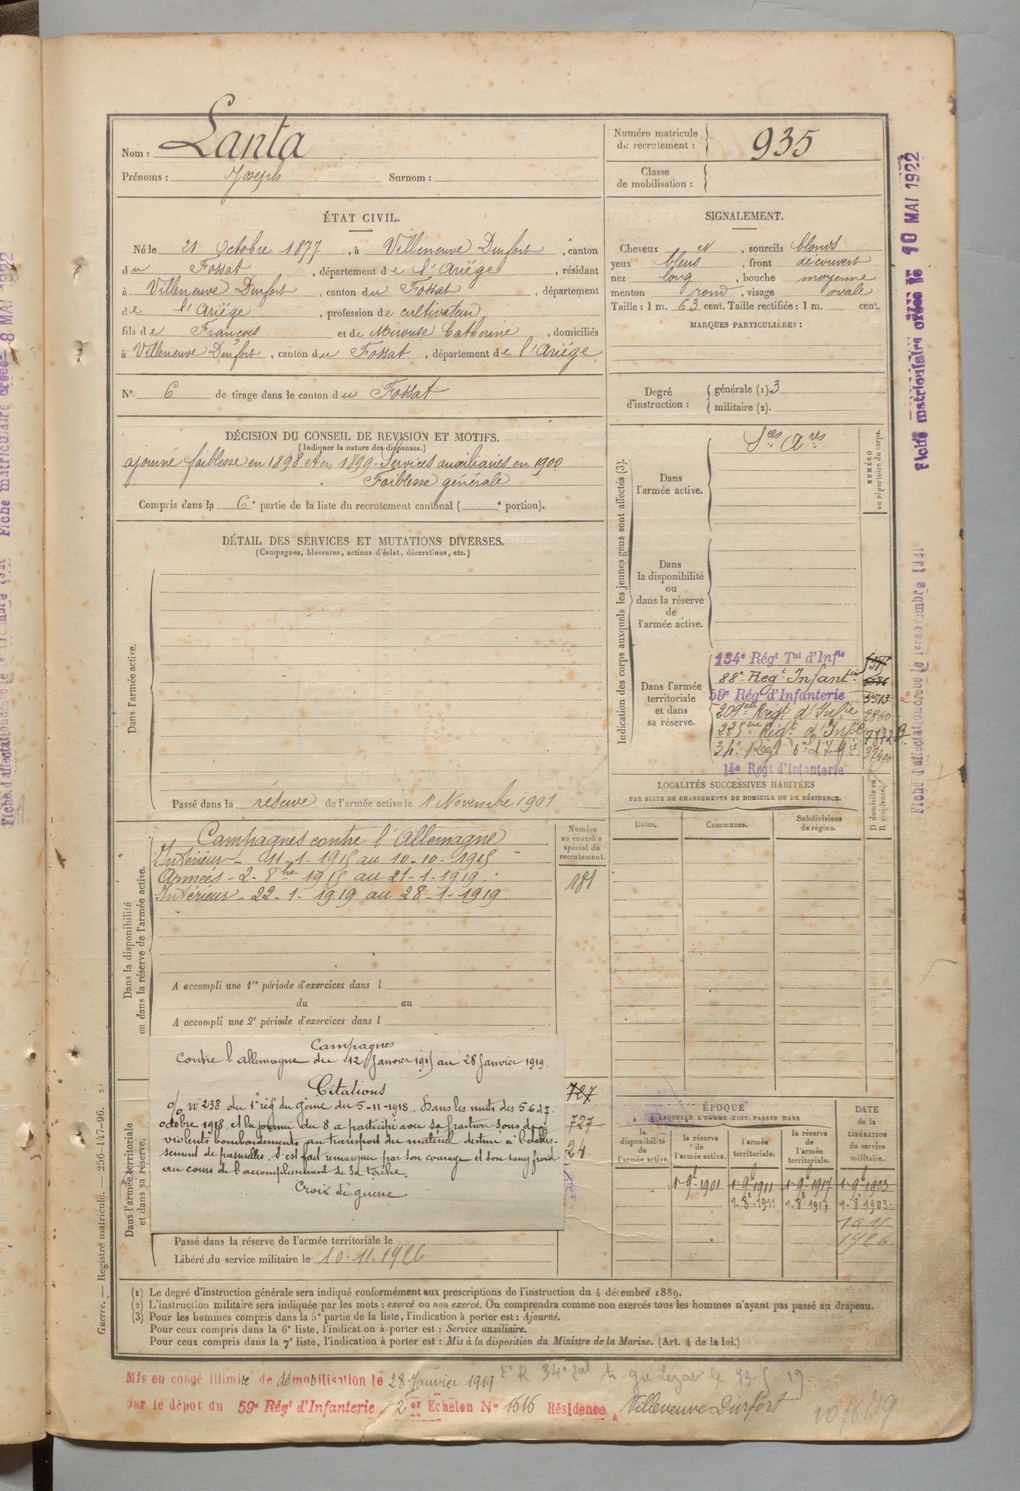 Nom : Lanta
Prénoms : Joseph Surnom :
Numéro matricule du recrutement : 935
Classe de mobilisation :
ÉTAT CIVIL.
Né le 21 Octobre 1877, à Villeneuve Durfort, canton
du Fossat, département de l'Ariége, résidant
à Villeneuve Durfort, canton du Fossat, département
de l'Ariége, profession de cultivateur
fils de François et de Mirouse Catherine, domiciliés
à Villeneuve Durfort, canton du Fossat, département de l'Ariége
N° 6 de tirage dans le canton du Fossat
SIGNALEMENT.
Cheveux et, sourcils blonds
yeux bleus, front découvert
nez long, bouche moyenne
menton rond, visage ovale
Taille : 1 m. 63 cent. Taille rectifiée : 1 m. cent.
MARQUES PARTICULIÈRES :
Degré d'instruction : générale (1) 3
militaire (2).
DÉCISION DU CONSEIL DE REVISION ET MOTIFS.
(Indiquer la nature des dispenses.)
ajourné faiblesse en 1898 et en 1899. Services auxiliaires en 1900
Faiblesse générale
Compris dans la 6e partie de la liste du recrutement cantonal ( e portion).
DÉTAIL DES SERVICES ET MUTATIONS DIVERSES.
(Campagnes, blessures, actions d'éclat, décorations, etc.)
Dans l'armée active.
Passé dans la réserve de l'armée active le 1 Novembre 1901
Indication des corps auxquels les jeunes gens sont affectés (3).
NUMÉRO au répertoire du corps.
Dans l'armée active.
Sces Ares
Dans la disponibilité ou dans la réserve de l'armée active.
Dans l'armée territoriale et dans sa réserve.
134e Régt Tal d'Infie
88e Regt Infanterie
59e Régt d'Infanterie 3513
209eme Regt d'Infie 2860
225eme Regt d'Infie
14e Régt d'Infanterie
LOCALITÉS SUCCESSIVES HABITÉES
PAR SUITE DE CHANGEMENTS DE DOMICILE OU DE RÉSIDENCE.
Dates. Communes. Subdivisions de région. D domicile ou R résidence.
Dans la disponibilité ou dans la réserve de l'armée active.
Numéro au contrôle spécial du recrutement.
181
Campagnes contre l'Allemagne
Intérieur - 11-1-1915 au 10-10-1915
Armées - 2-8bre 1915 au 21-1-1919.
Intérieur - 22-1-1919 au 28-1-1919
A accompli une 1re période d'exercices dans l
du au
A accompli une 2e période d'exercices dans l
Campagnes
Contre l'allemagne du 12 Janvier 1915 au 28 Janvier 1919.
Citations
o/ N° 238 du 1er rég du génie du 5-11-1918. Dans les nuits des 5 6 et 7
octobre 1918 et la journée du 8 a participé avec sa fraction sous de
violents bombardements au transport du matériel destiné à l'établis-
sement de passerelles. S'est fait remarquer par son courage et son sang froid
au cours de l'accomplissement de sa tâche.
Croix de guerre
727
727
24
Dans l'armée territoriale et dans sa réserve.
Passé dans la réserve de l'armée territoriale le
Libéré du service militaire le 10.11.1926
ÉPOQUE
À LAQUELLE L'HOMME DOIT PASSER DANS
la disponibilité de l'armée active. la réserve de l'armée active. l'armée territoriale. la réserve de l'armée territoriale.
DATE DE LA LIBÉRATION du service militaire.
1 9e 1901 1 9e 1911 1 9e 1917 1 9e 1923
1.8e 1911 1.8e 1917 1.8e 1923
1926
(1) Le degré d'instruction générale sera indiqué conformément aux prescriptions de l'instruction du 4 décembre 1889.
(2) L'instruction militaire sera indiquée par les mots : exercé ou non exercé. On comprendra comme non exercés tous les hommes n'ayant pas passé au drapeau.
(3) Pour les hommes compris dans la 5e partie de la liste, l'indication à porter est : Ajourné.
Pour ceux compris dans la 6e liste, l'indication à porter est : Service auxiliaire.
Pour ceux compris dans la 7e liste, l'indication à porter est : Mis à la disposition du Ministre de la Marine. (Art. 4 de la loi.)
Guerre. — Registre matricule. — 256-147-96.
Mis en congé illimité de démobilisation le 28 Janvier 1919
Par le dépot du 59e Régt d'Infanterie 2er Echelon N° 1515 Résidence à Villeneuve Durfort
Fiche matriculaire créée le 10 MAI 1922
Fiche d'affectation créée le 1er novembre 1921
Fiche matriculaire créée le 8 MAI 1922